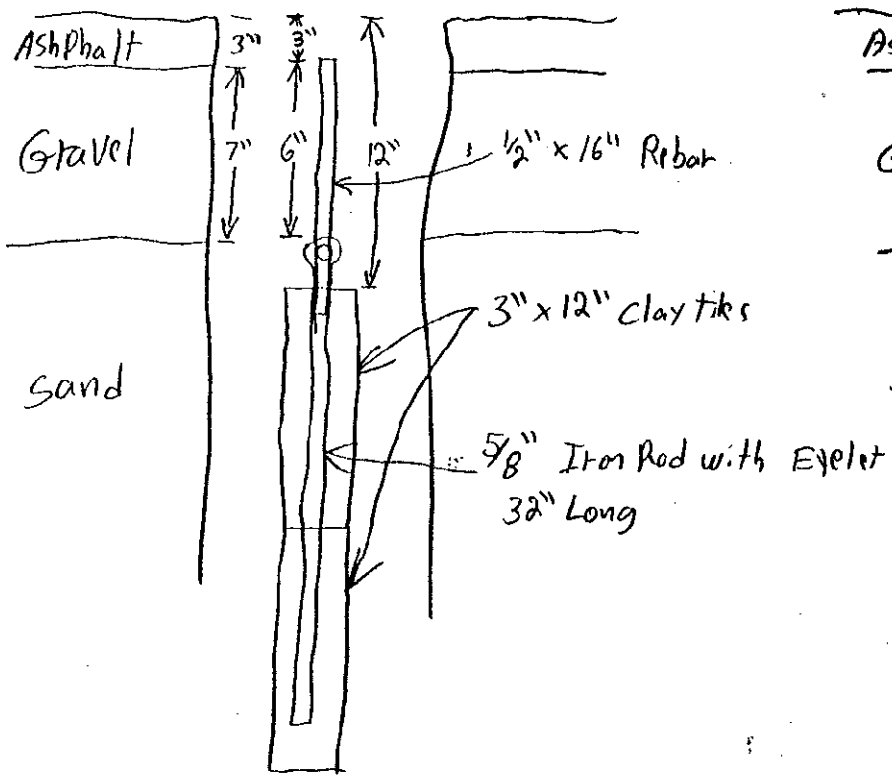 Ashphalt 3" 3" As
Gravel 7" 6" 12" 1/2" x 16" Rebar G
3" x 12" Clay tiles
Sand
5/8" Iron Rod with Eyelet
32" Long